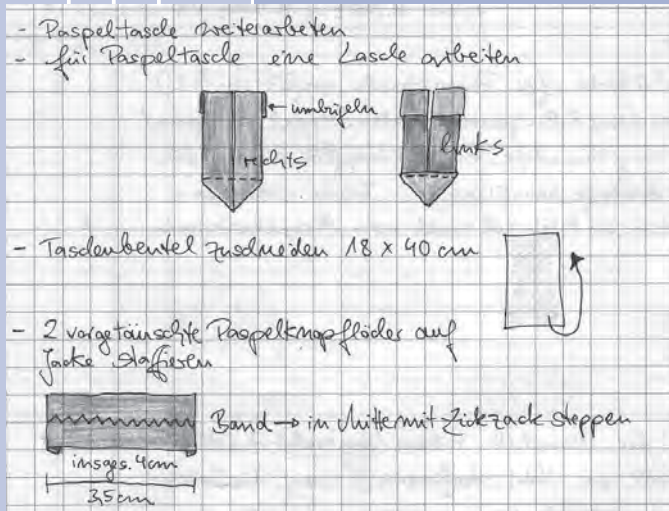 - Paspeltasche weiterarbeiten
- für Paspeltasche eine Lasche arbeiten
← umbügeln
rechts
links
- Taschenbeutel zuschneiden 18 x 40 cm
- 2 vorgetäuschte Paspelknopflöcher auf
Jacke staffieren
Band → in Mitte mit Zickzack steppen
insges. 4cm
3,5cm